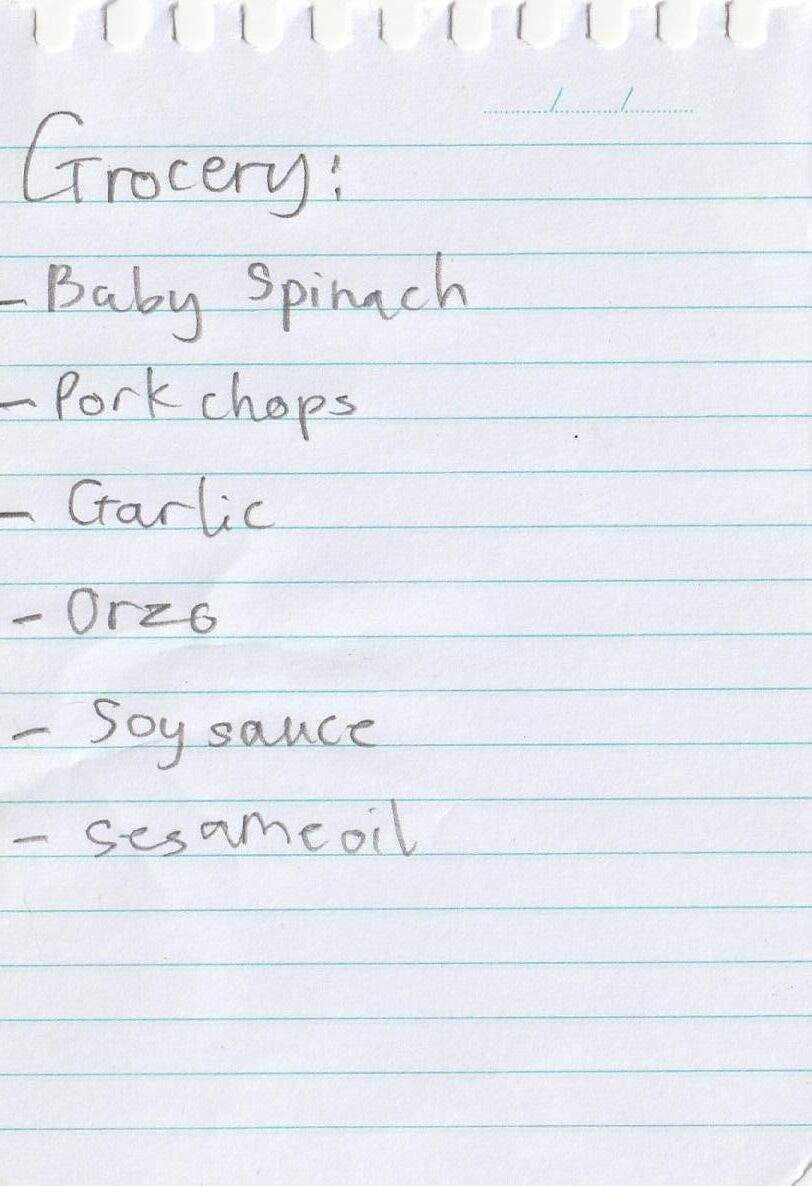 Grocery:
- Baby Spinach
- Pork chops
- Garlic
- Orzo
- Soy sauce
- sesame oil